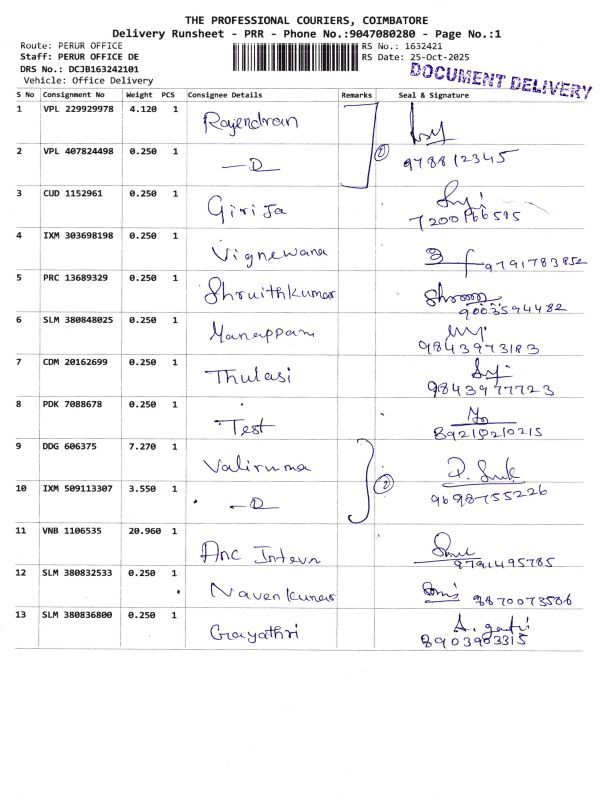 THE PROFESSIONAL COURIERS, COIMBATORE
Delivery Runsheet - PRR - Phone No.:9047080280 - Page No.:1
Route: PERUR OFFICE
RS No.: 1632421
Staff: PERUR OFFICE DE
RS Date: 25-Oct-2025
DRS No.: DCJB163242101
DOCUMENT DELIVERY
Vehicle: Office Delivery
S No Consignment No Weight PCS Consignee Details Remarks Seal & Signature
1 VPL 229929978 4.120 1 Rajendran
2 VPL 407824498 0.250 1 —D ② 978812345
3 CUD 1152961 0.250 1 Girija
4 IXM 303698198 0.250 1 Vignewana 9791783852
5 PRC 13689329 0.250 1 Shruithkumar 9003594482
6 SLM 380848025 0.250 1 Manappam 9843973183
7 CDM 20162699 0.250 1 Thulasi 9843977723
8 PDK 7088678 0.250 1 Test 89210210215
9 DDG 606375 7.270 1 Valiruma
10 IXM 509113307 3.550 1 —D ② 9698755226
11 VNB 1106535 20.960 1 9791495785
12 SLM 380832533 0.250 1 Naven kumar 8870073506
13 SLM 380836800 0.250 1 Gayathri 8903903315